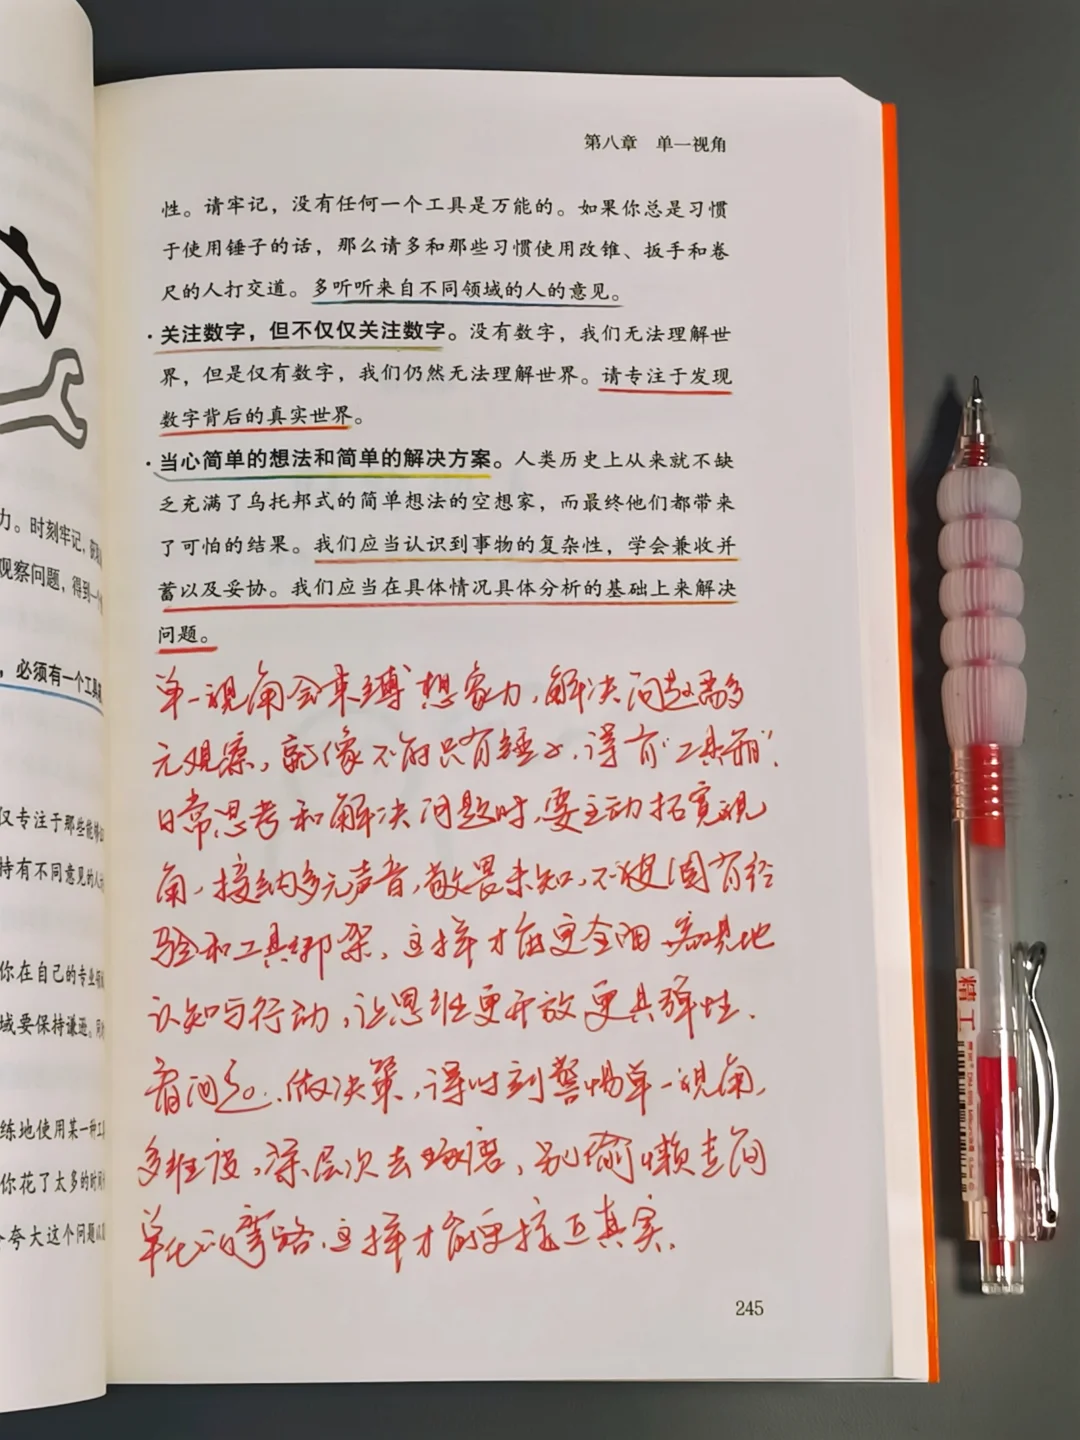 第八章 单一视角
性。请牢记，没有任何一个工具是万能的。如果你总是习惯
于使用锤子的话，那么请多和那些习惯使用改锥、扳手和卷
尺的人打交道。多听听来自不同领域的人的意见。
·关注数字，但不仅仅关注数字。没有数字，我们无法理解世
界，但是仅有数字，我们仍然无法理解世界。请专注于发现
数字背后的真实世界。
·当心简单的想法和简单的解决方案。人类历史上从来就不缺
乏充满了乌托邦式的简单想法的空想家，而最终他们都带来
了可怕的结果。我们应当认识到事物的复杂性，学会兼收并
蓄以及妥协。我们应当在具体情况具体分析的基础上来解决
问题。
单一视角会束缚想象力，解决问题需多
元观察，就像不能只有锤子，得有“工具箱”.
日常思考和解决问题时，要主动拓宽视
角，接纳多元声音，敬畏未知，不被固有经
验和工具绑架，这样才能更全面、客观地
认知与行动，让思维更开放更具弹性.
看问题、做决策，得时刻警惕单一视角，
多维度，深层次去琢磨，别偷懒走简
单化的弯路，这样才能更接近真实.
245
力。时刻牢记，
观察问题，得到一个
，必须有一个工具
仅专注于那些能够
持有不同意见的人
你在自己的专业
域要保持谦逊。
练地使用某一种工
你花了太多的时间
夸大这个问题
精工